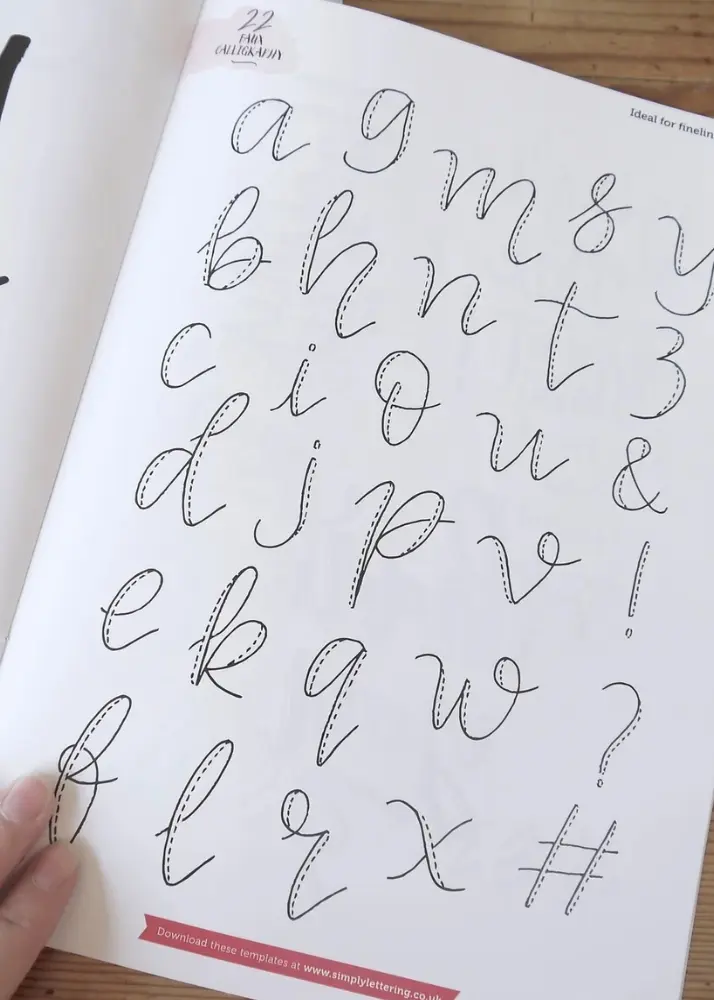 22
FAUX
CALLIGRAPHY
Ideal for finelin
a g m s y
b h n t z
c i o u &
d j p v !
e k q w ?
f l r x #
Download these templates at www.simplylettering.co.uk